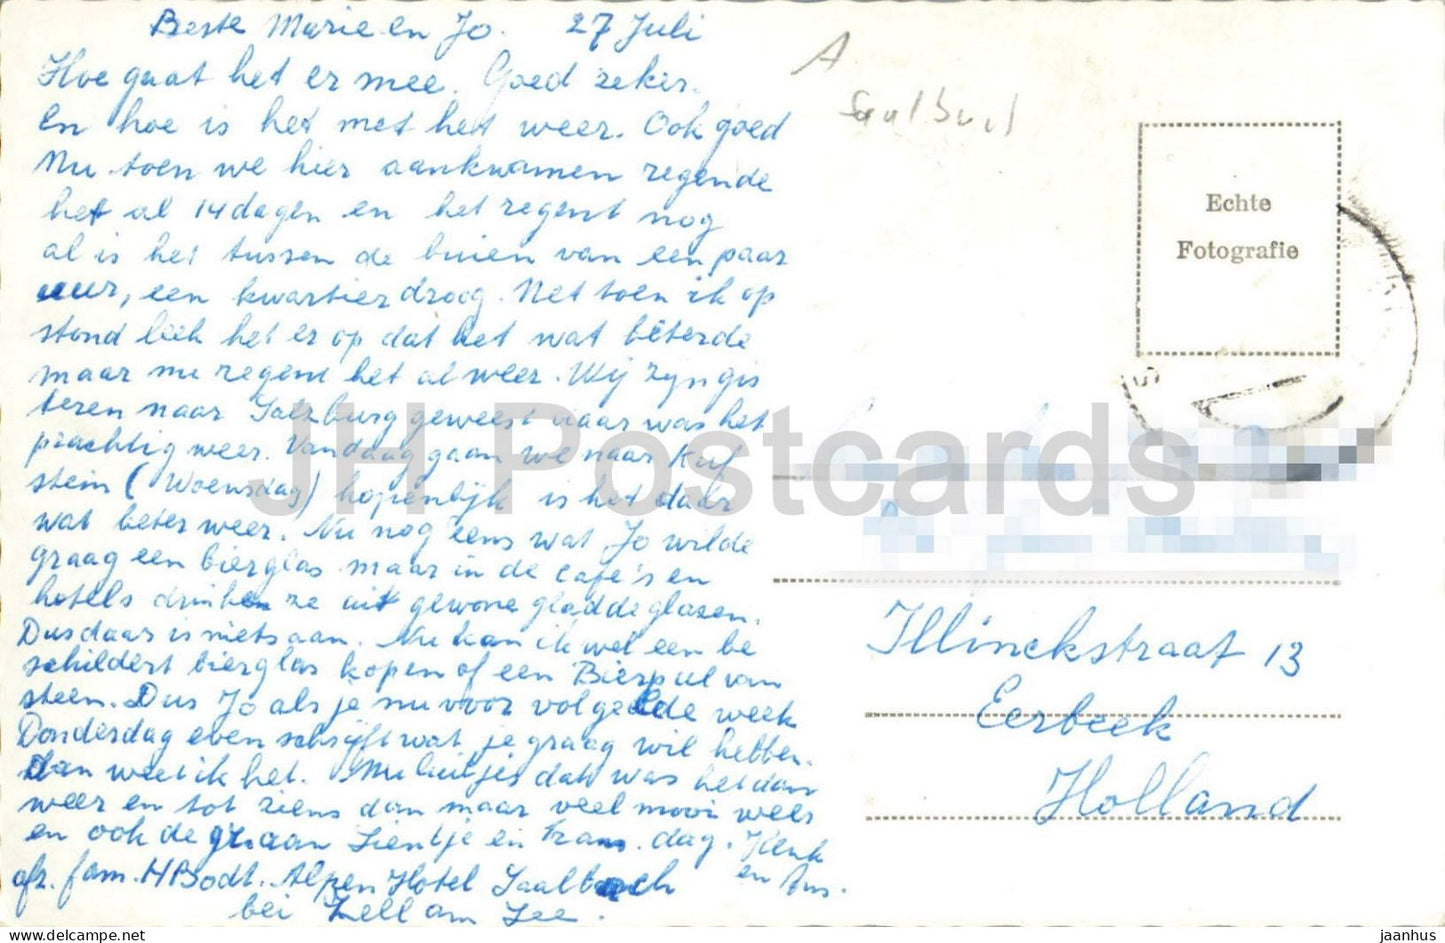 Beste Marie en Jo. 27 Juli
Hoe gaat het er mee. Goed zeker.
en hoe is het met het weer. Ook goed
Nu toen we hier aankwamen regende
het al 14 dagen en het regent nog
al is het tussen de buien van een paar
uur, een kwartier droog. Net toen ik op
stond leek het er op dat het wat beterde
maar nu regent het al weer. Wij zyn gis
teren naar Salzburg geweest daar was het
prachtig weer. Vandaag gaan we naar Kuf
stein (Woensdag) hopenlijk is het daar
wat beter weer. Nu nog eens wat Jo wilde
graag een bierglas maar in de cafe's en
hotels drinken ze uit gewone gladde glazen.
Dus daar is niets aan. Nu kan ik wel een be
schildert bierglas kopen of een Bierpul van
steen. Dus Jo als je nu voor volgende week
Donderdag even schrijft wat je graag wil hebben.
Dan weet ik het. Nu luitjes dat was het dan
weer en tot ziens dan maar veel mooi weer
en ook de gr. aan Lientje en Frans. dag. Henk
en Ans.
afz. fam. H Bodt. Alpen Hotel Saalbach
bei Zell am See.
A
Saalbach
Echte
Fotografie
Illinckstraat 13
Eerbeek
Holland
JH Postcards
https://www.delcampe.net
jaanhus